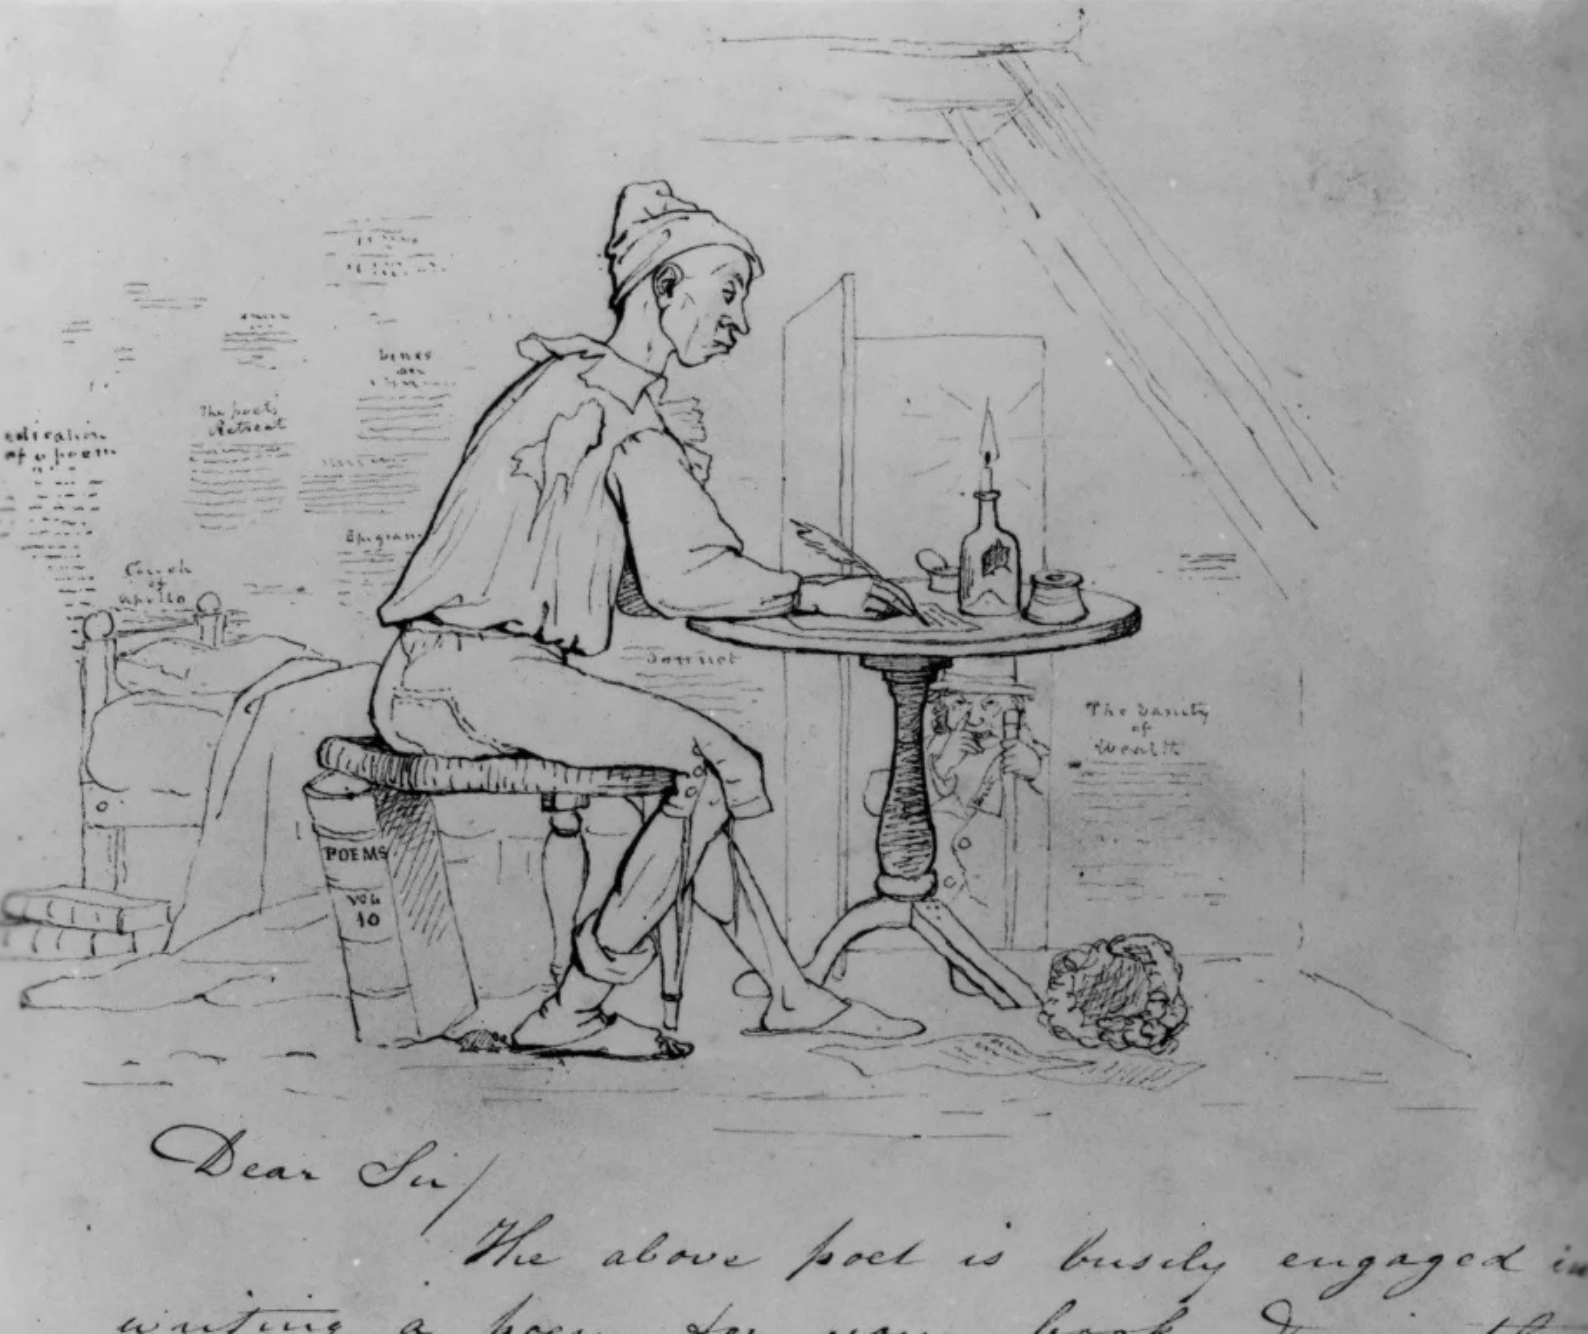 Lines
on
The poets'
Retreat
of a poem
Epigram
Couch
of
Apollo
Sonnet
The Vanity
of
Wealth
POEMS
VOL
10
Dear Sir/
The above poet is busily engaged in
writing a poem for your book